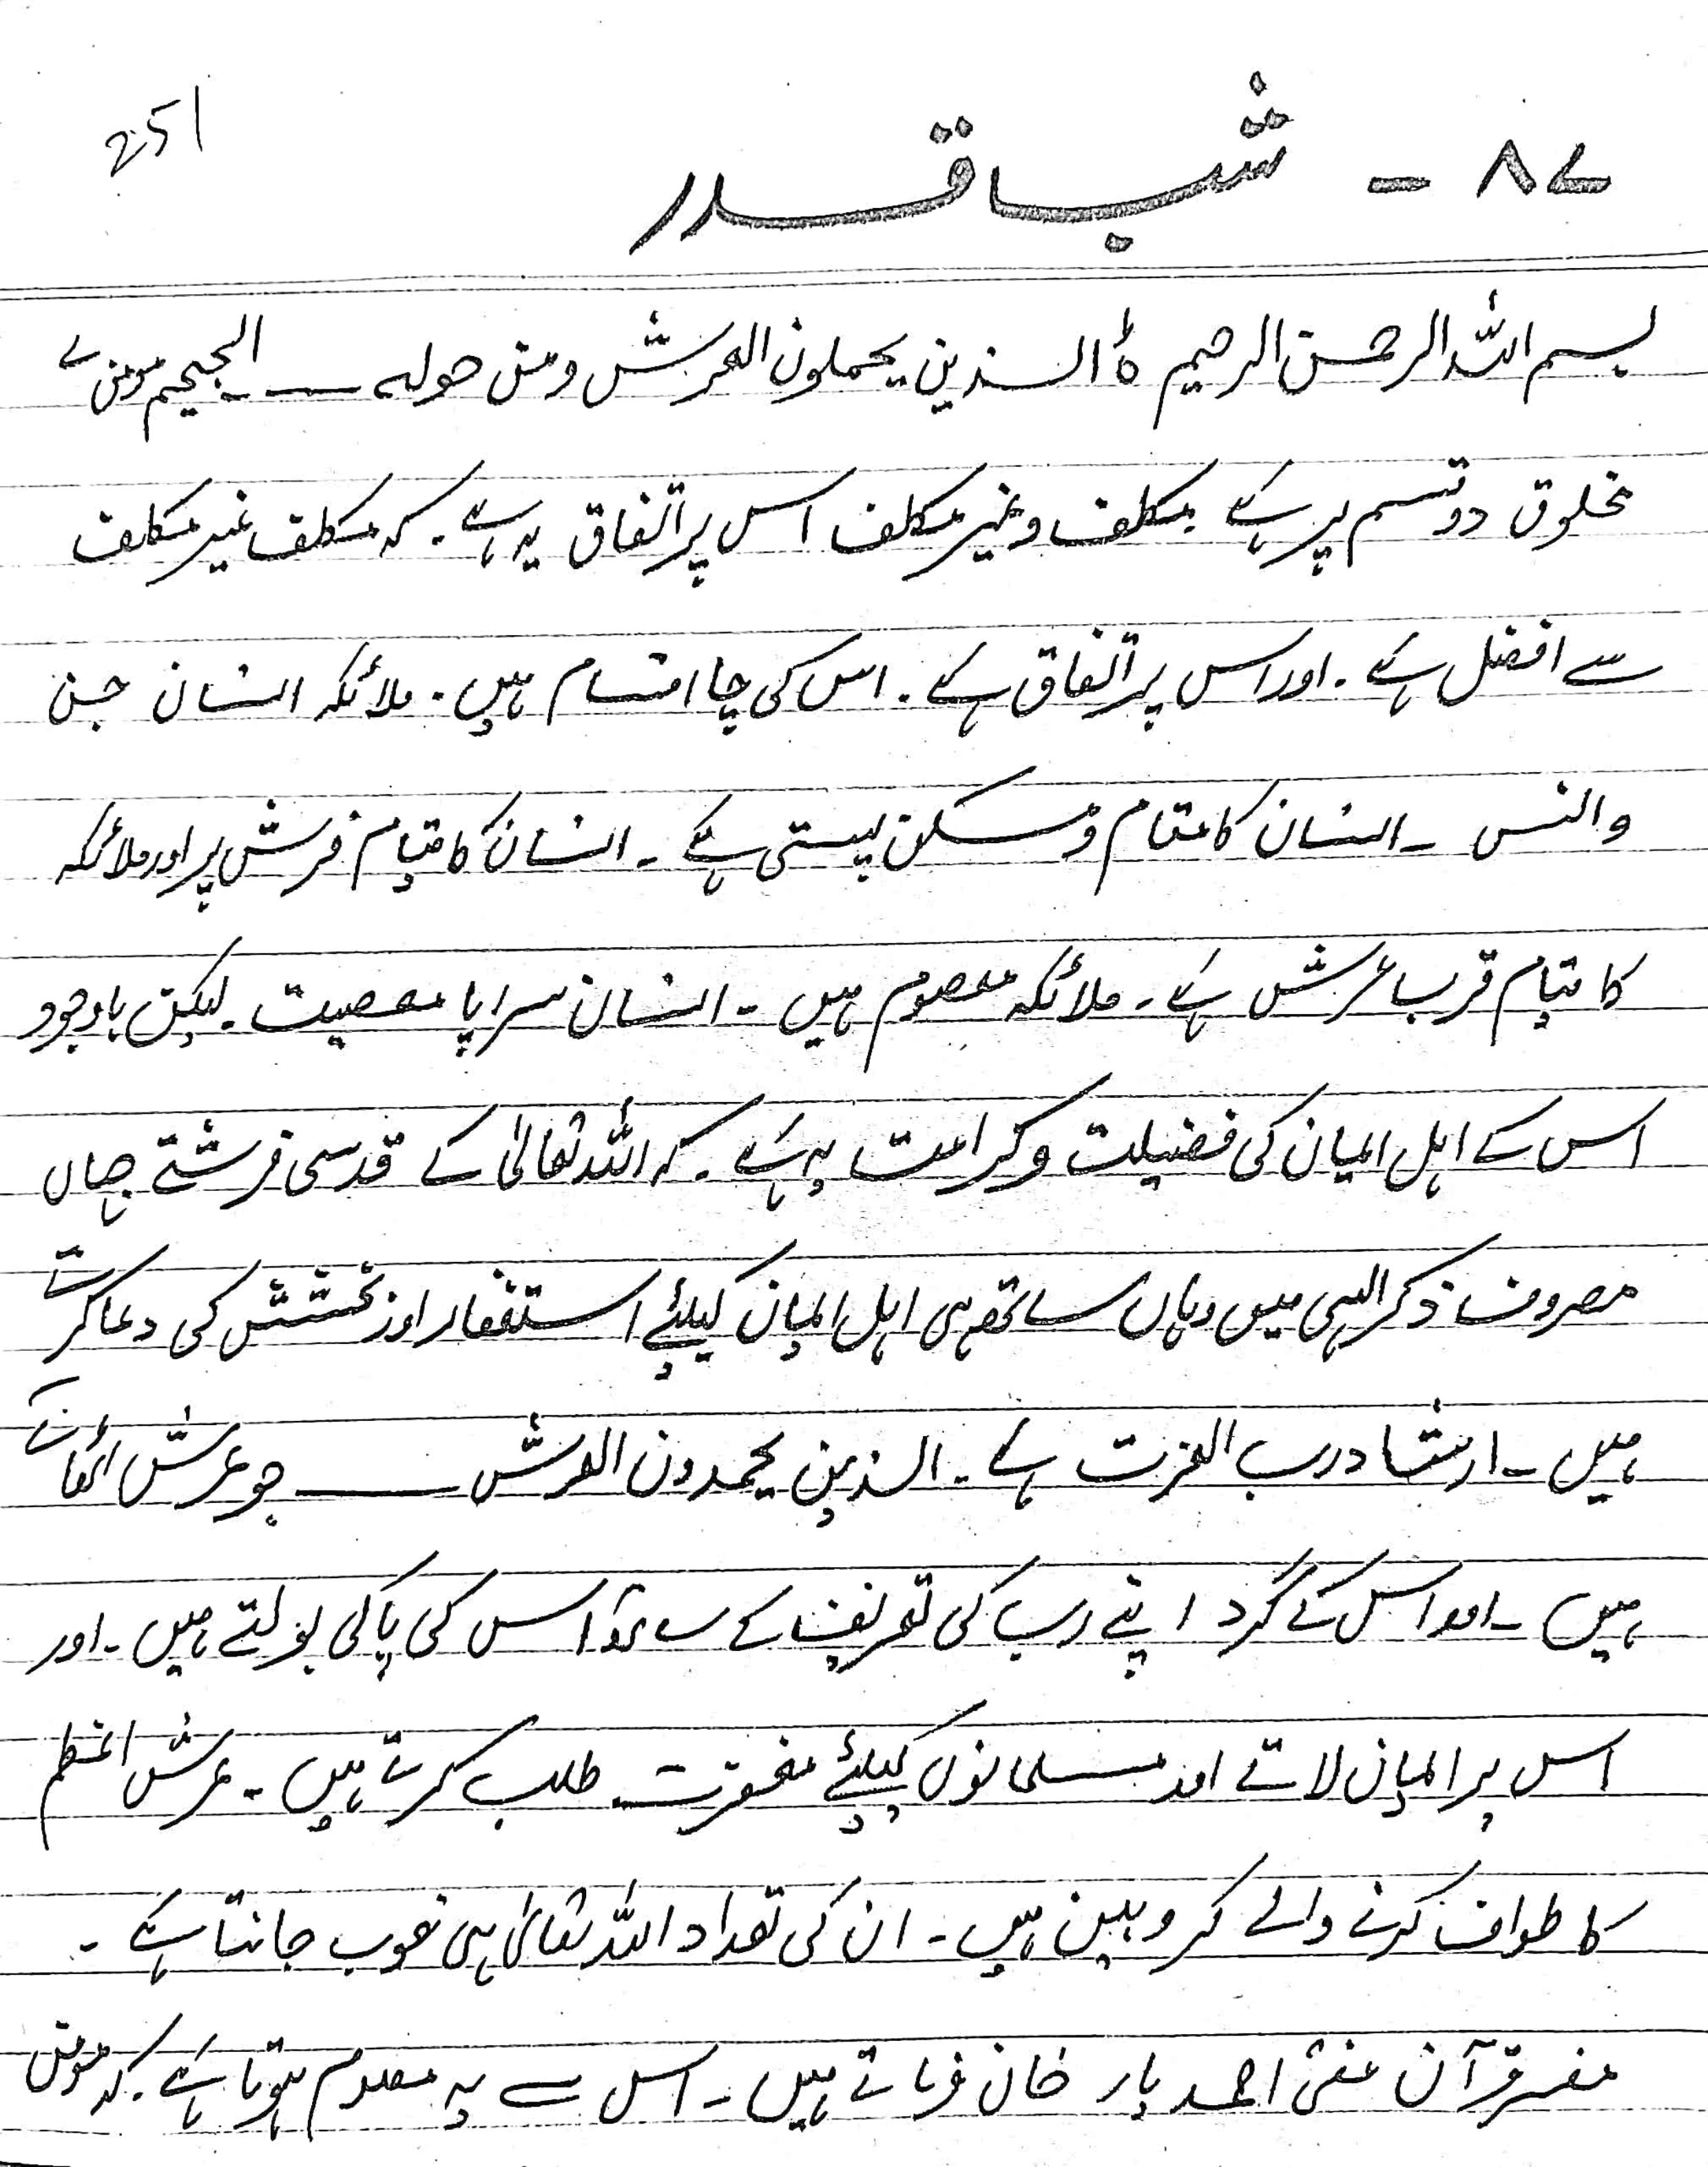 251
۸۷ - شب قدر
بسم اللہ الرحمن الرحیم ہ الذین یحملون العرش ومن حولہ ــــ الجحیم مومن ۷
مخلوق دو قسم پر ہے مکلف و غیر مکلف اس پر اتفاق یہ ہے۔ کہ مکلف غیر مکلف
سے افضل ہے۔ اور اس پر اتفاق ہے۔ اس کی چا اقسام ہیں۔ ملائکہ انسان جن
والنس ۔ انسان کا مقام و مسکن پستی ہے ۔ انسان کا قیام فرش پر اور ملائکہ
کا قیام قرب عرش ہے۔ ملائکہ معصوم ہیں ۔ انسان سراپا معصیت۔ لیکن باوجود
اس کے اہل ایمان کی فضیلت و کرامت یہ ہے۔ کہ اللہ تعالیٰ کے قدسی فرشتے جہاں
مصروف ذکر الہی میں وہاں ساتھ ہی اہل ایمان کیلئے استغفار اور بخشش کی دعا کرتے
ہیں ۔ ارشاد رب العزت ہے ۔ الذین یحمدون العرش ــــ جو عرش اٹھاتے
ہیں ۔ اور اس کے گرد اپنے رب کی تعریف کے ساتھ اس کی پاکی بولتے ہیں ۔ اور
اس پر ایمان لاتے اور مسلمانوں کیلئے مغفرت طلب کرتے ہیں ۔ عرش اعظم
کا طواف کرنے والے کروبین ہیں ۔ ان کی تعداد اللہ تعالیٰ ہی خوب جانتا ہے ۔
مفسر قرآن مفتی احمد یار خان فرماتے ہیں ۔ اس سے یہ معلوم ہوتا ہے۔ کہ مومن